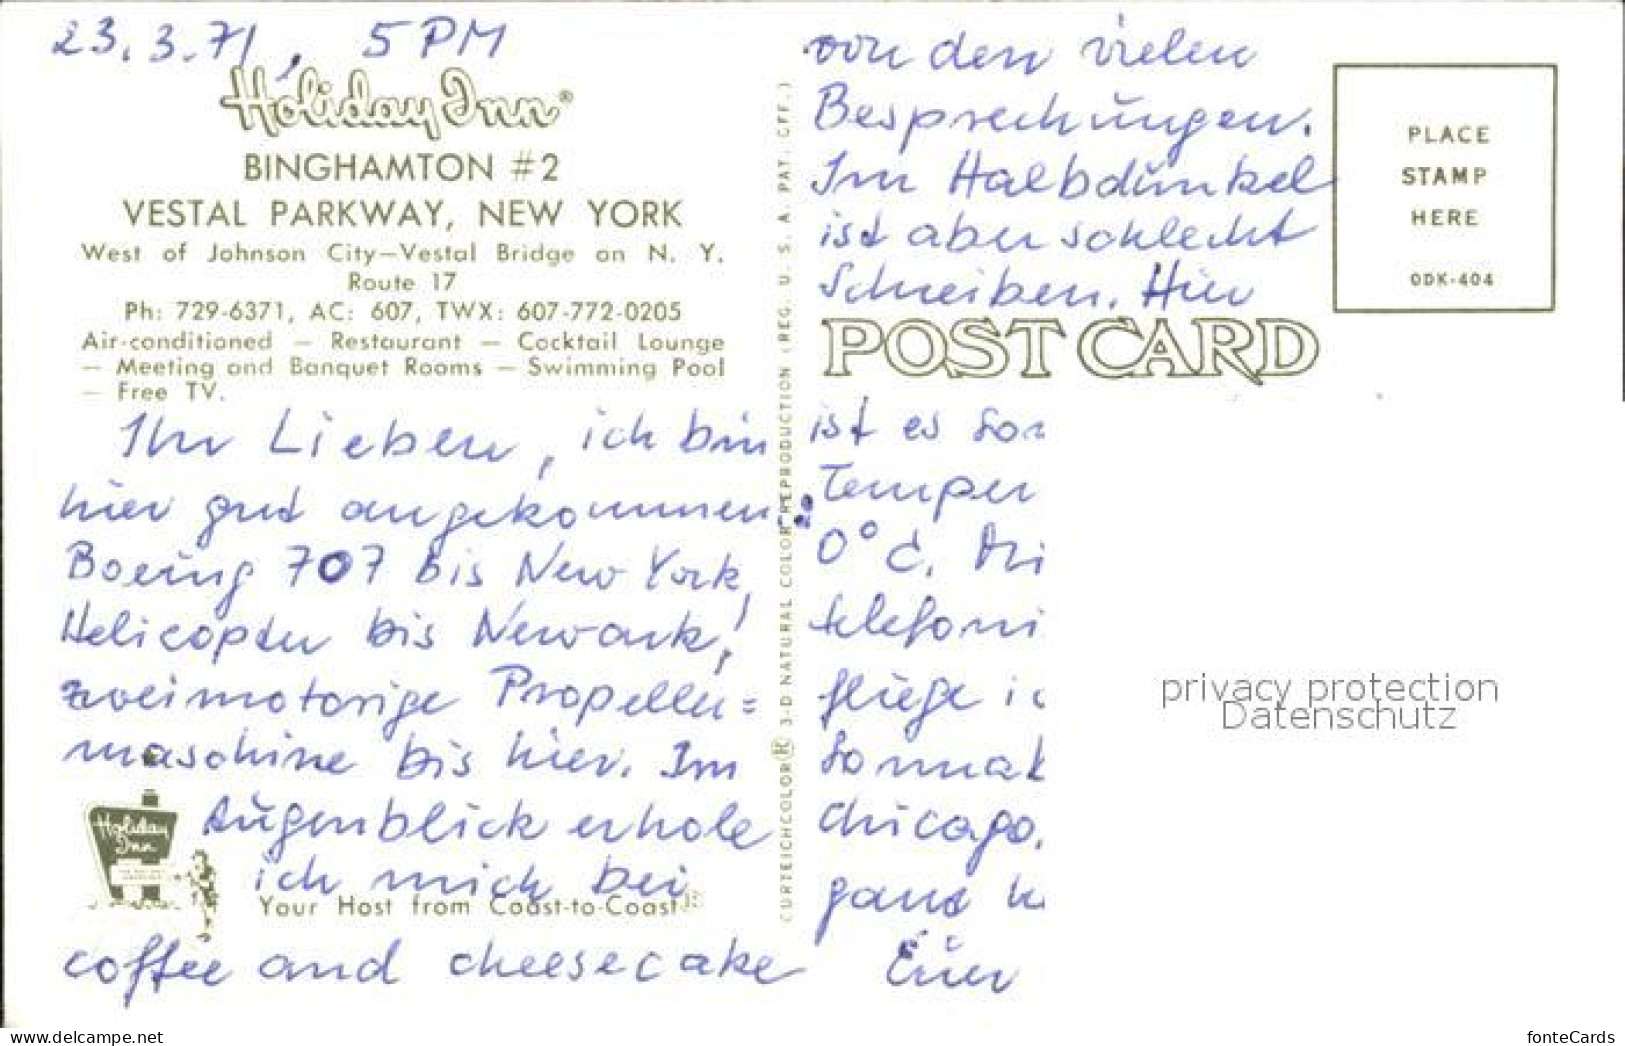 23.3.71, 5 PM
Holiday Inn®
BINGHAMTON #2
VESTAL PARKWAY, NEW YORK
West of Johnson City—Vestal Bridge on N. Y.
Route 17
Ph: 729-6371, AC: 607, TWX: 607-772-0205
Air-conditioned — Restaurant — Cocktail Lounge
— Meeting and Banquet Rooms — Swimming Pool
— Free TV.
Ihr Lieben, ich bin
hier gut angekommen:
Boeing 707 bis New York,
Helicopter bis Newark!,
zweimotorige Propeller=
maschine bis hier. Im
Augenblick erhole
ich mich bei
Holiday
Inn
Your Host from Coast-to-Coast
coffee and cheesecake
CURTEICHCOLOR® 3-D NATURAL COLOR REPRODUCTION (REG. U. S. A. PAT. OFF.)
von den vielen
Besprechungen.
Im Halbdunkel
ist aber schlecht
Schreiben. Hier
POST CARD
ist es
Temper
0° C.
telefoni
fliege
Chicago,
ganz
Euer
PLACE
STAMP
HERE
ODK-404
privacy protection
Datenschutz
the-a-witch.delcampe.net
fonteCards